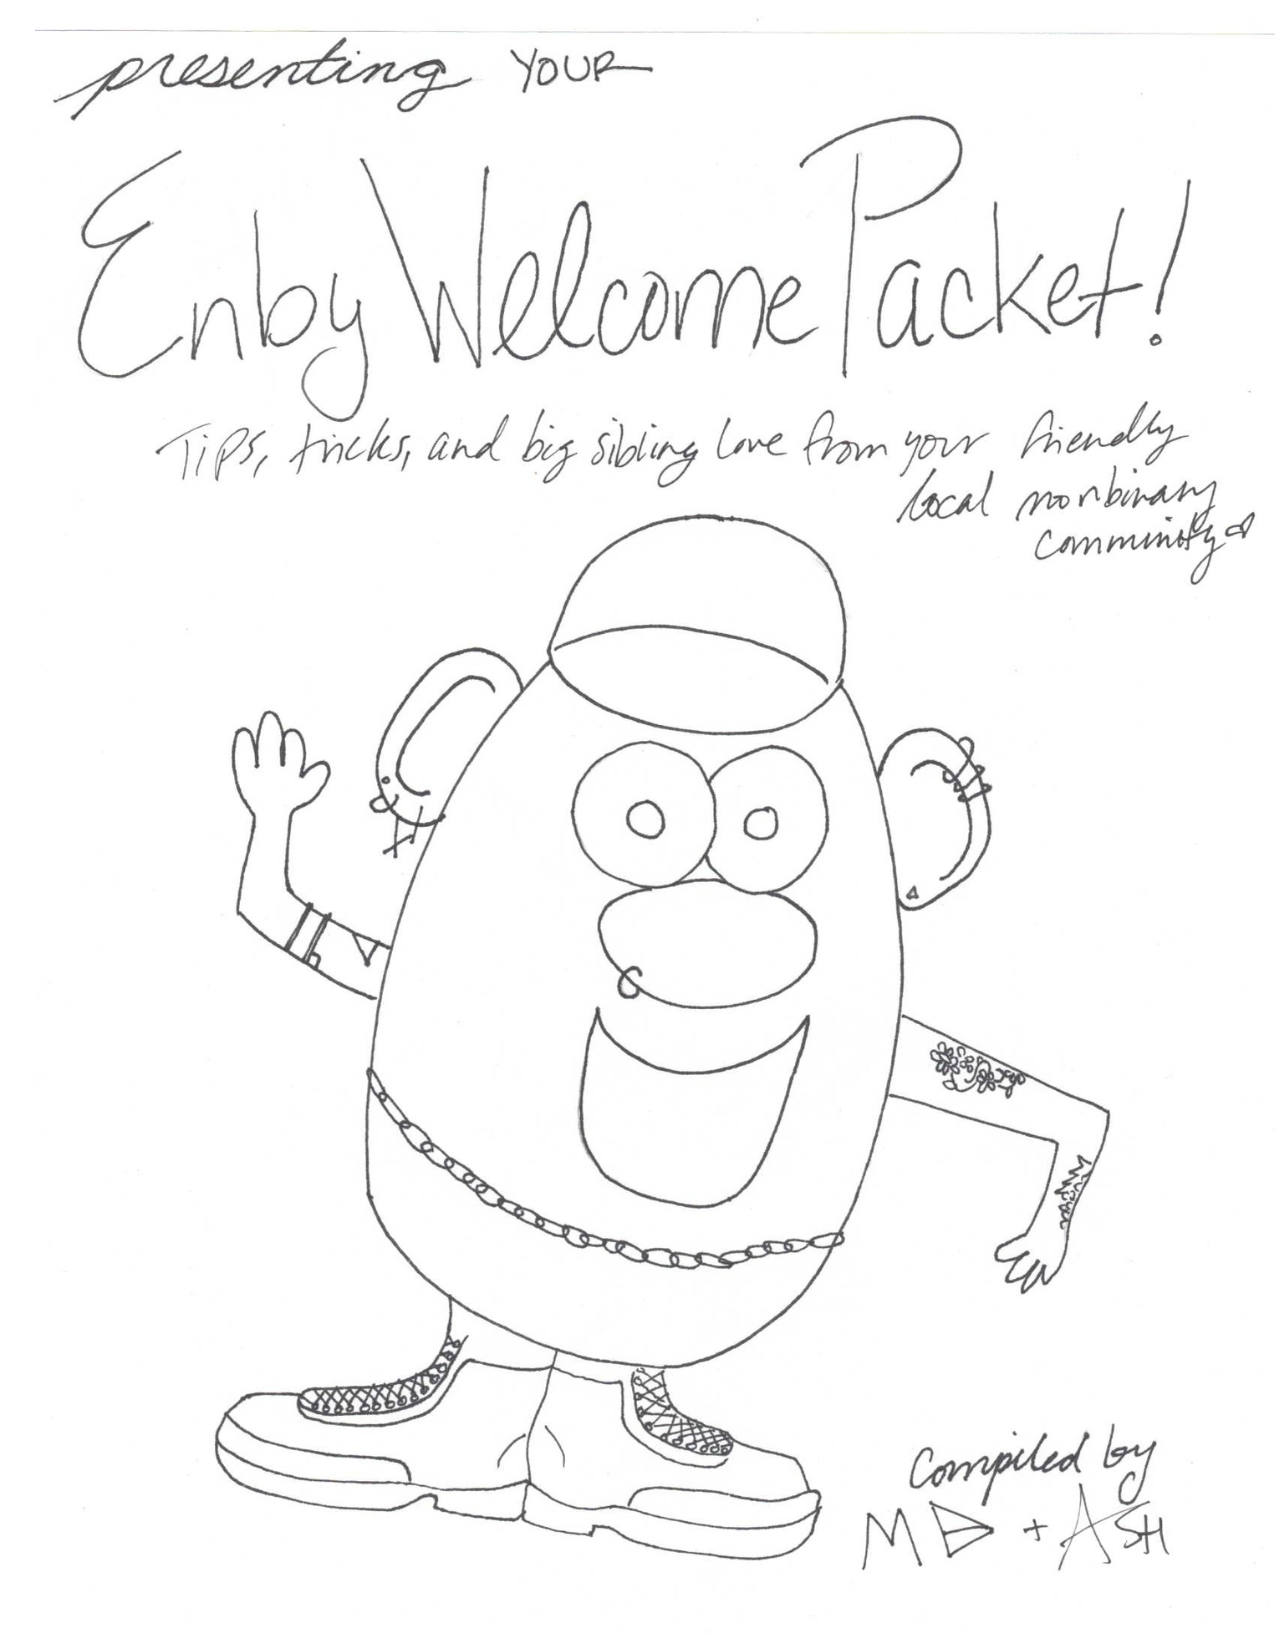 presenting YOUR
Enby Welcome Packet!
Tips, tricks, and big sibling love from your friendly
local nonbinary
comminity
compiled by
MD + ASH